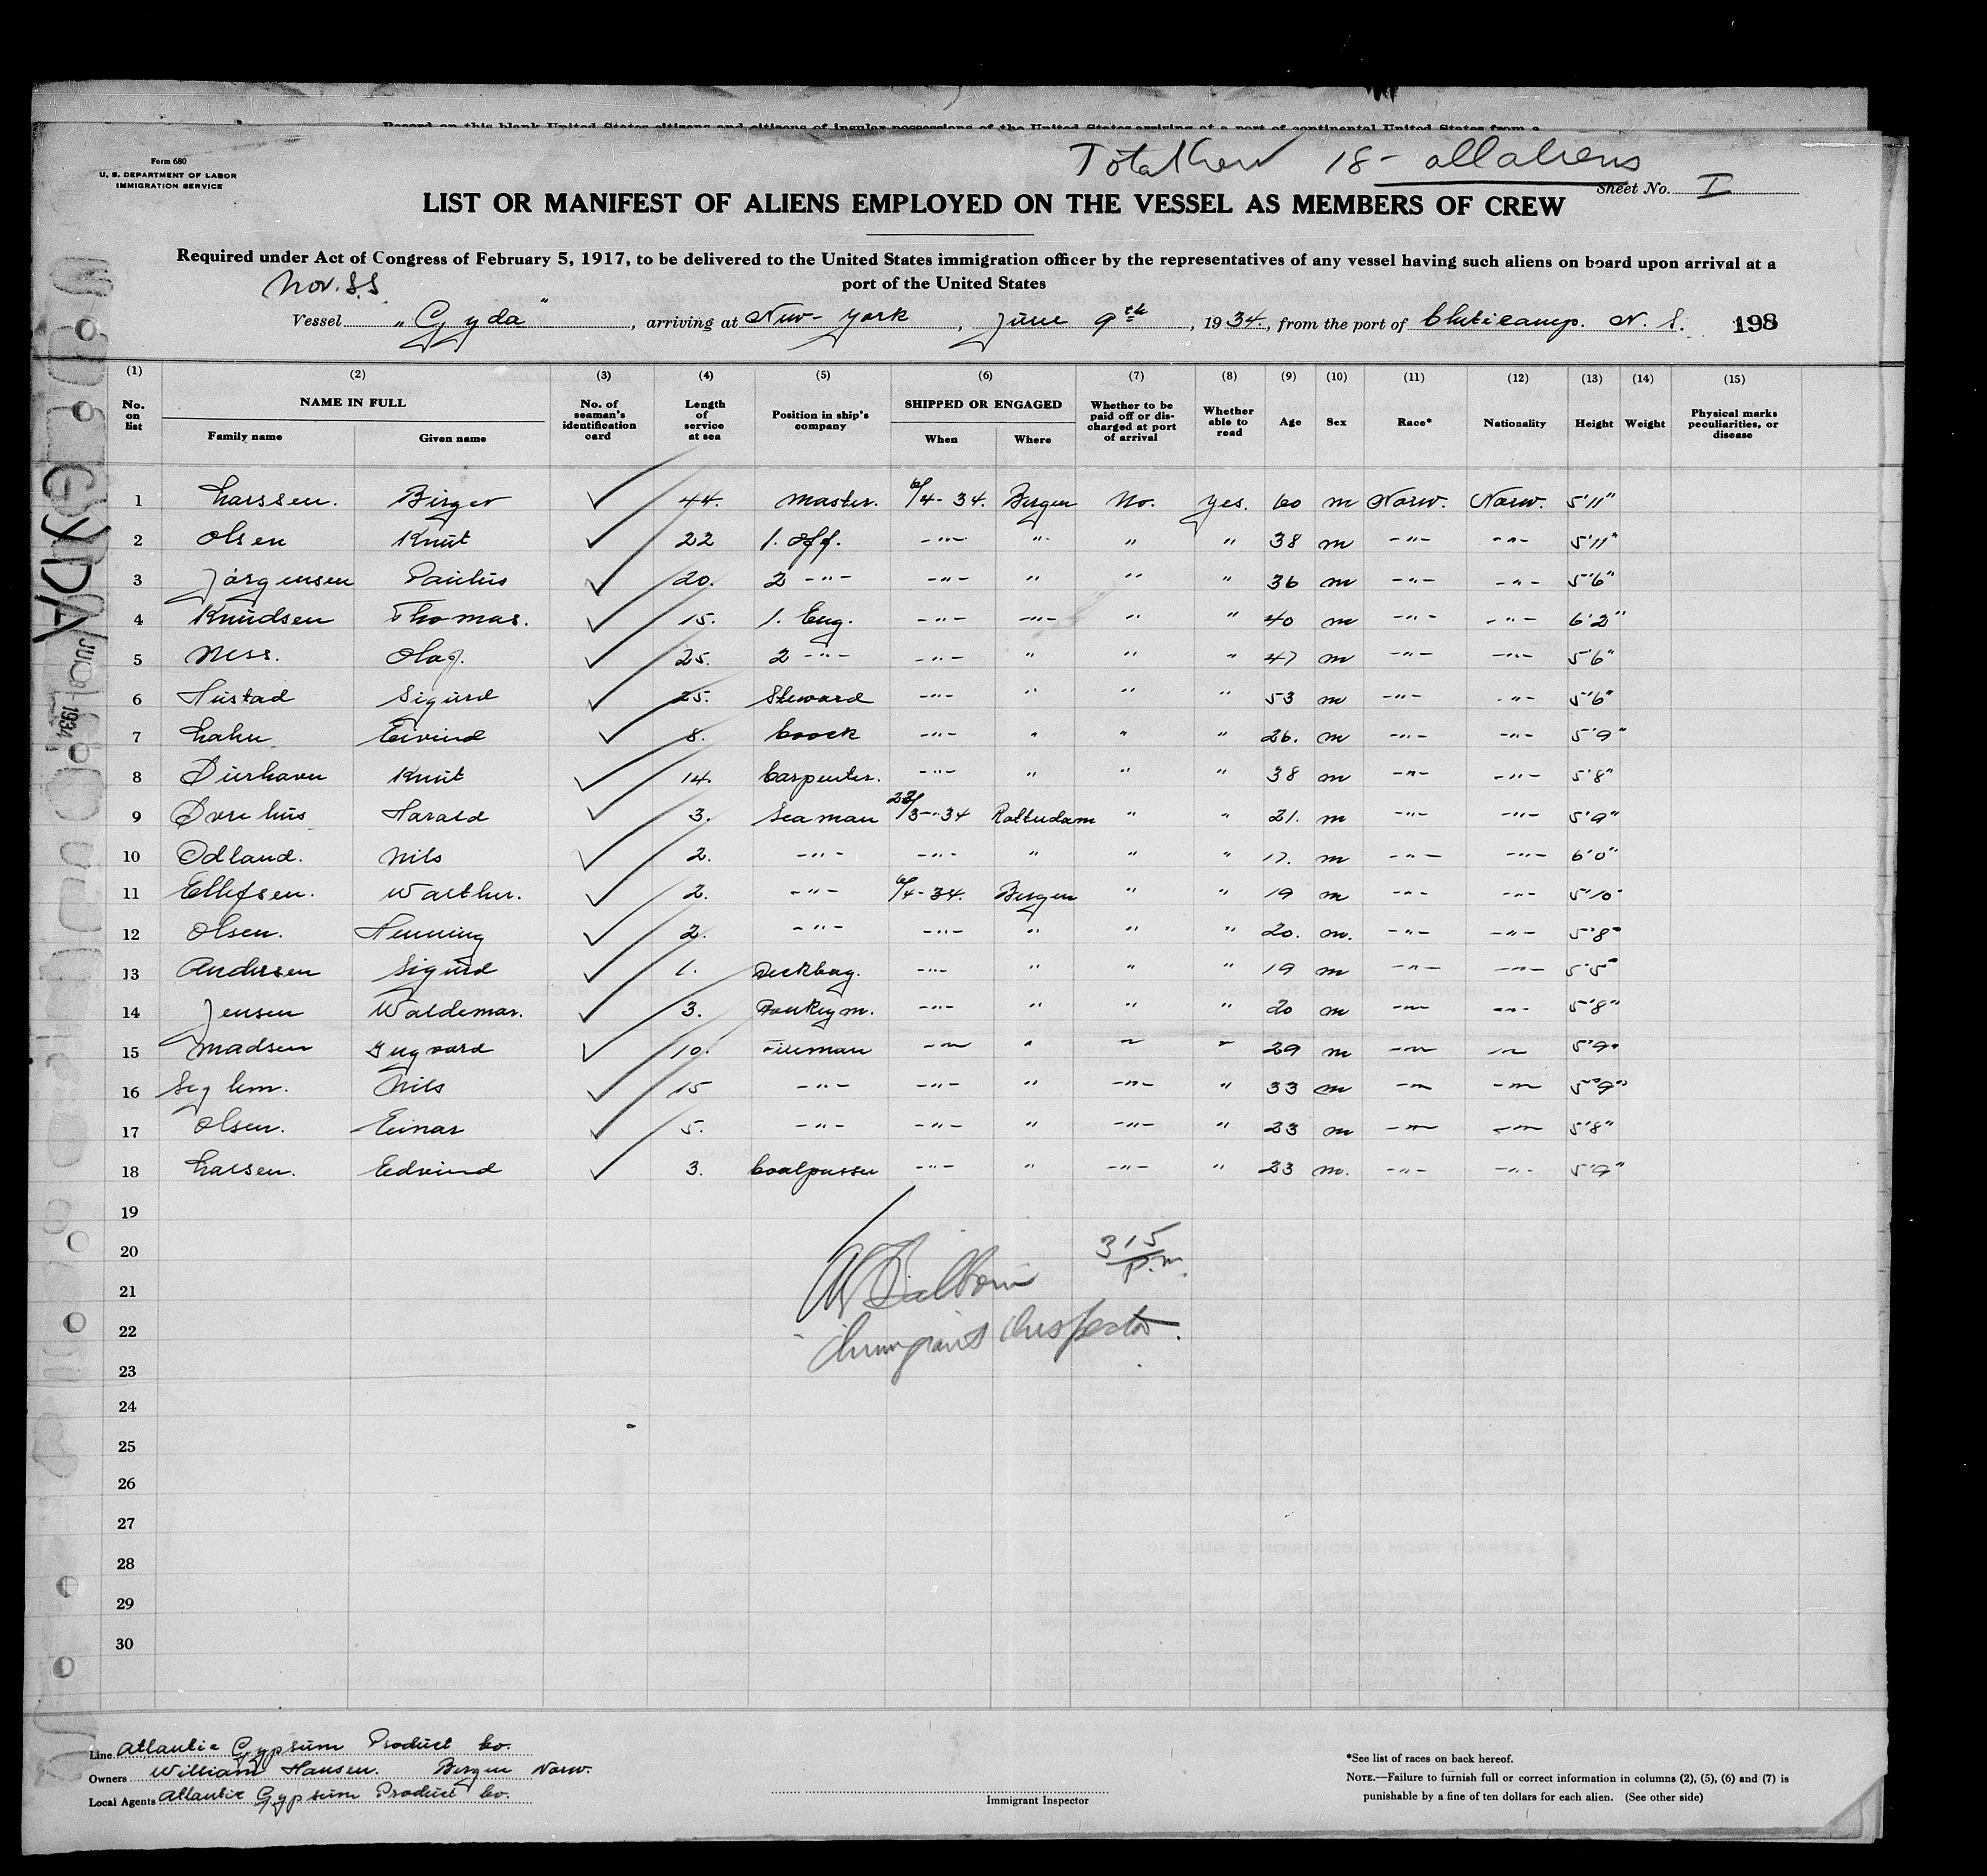 Record on this blank United States citizens and citizens of insular possessions of the United States arriving at a port of continental United States from a
Total Crew 18 - all aliens
Form 680
U. S. DEPARTMENT OF LABOR
IMMIGRATION SERVICE
Sheet No. I
LIST OR MANIFEST OF ALIENS EMPLOYED ON THE VESSEL AS MEMBERS OF CREW
Required under Act of Congress of February 5, 1917, to be delivered to the United States immigration officer by the representatives of any vessel having such aliens on board upon arrival at a
port of the United States
Nor. S.S.
Vessel "Gyda", arriving at New-York, June 9th, 1934, from the port of Cheticamp. N. S. 198
(1) (2) (3) (4) (5) (6) (7) (8) (9) (10) (11) (12) (13) (14) (15)
No. on list NAME IN FULL Family name Given name No. of seaman's identification card Length of service at sea Position in ship's company SHIPPED OR ENGAGED When Where Whether to be paid off or discharged at port of arrival Whether able to read Age Sex Race* Nationality Height Weight Physical marks peculiarities, or disease
1 Larssen. Birger ✓ 44. Master. 6/4-34. Bergen No. yes. 60 m Norw. Norw. 5'11"
2 Olsen Knut ✓ 22 1. Off. -"- " " " 38 m -"- -"- 5'11"
3 Jörgensen Paulus ✓ 20. 2 -"- -"- " " " 36 m -"- -"- 5'6"
4 Knudsen Thomas. ✓ 15. 1. Eng. -"- -"- " " 40 m -"- -"- 6'2"
5 Ness. Olaf. ✓ 25. 2 -"- -"- " " " 47 m -"- -"- 5'6"
6 Hustad Sigurd ✓ 25. Steward -"- " " " 53 m -"- -"- 5'6"
7 Lahn Eivind ✓ 8. Coock -"- " " " 26. m -"- -"- 5'9"
8 Knut ✓ 14. Carpenter. -"- " " " 38 m -"- -"- 5'8"
9 Øvrehus Harald ✓ 3. Seaman 23/3-34 Rotterdam " " 21. m -"- -"- 5'9"
10 Odland. Nils ✓ 2. -"- -"- " " " 17. m -"- -"- 6'0"
11 Ellefsen. Walther. ✓ 2. -"- 6/4-34. Bergen " " 19 m -"- -"- 5'10"
12 Olsen. Henning ✓ 2. -"- -"- " " " 20. m. -"- -"- 5'8"
13 Andersen Sigurd ✓ 1. Deckboy. -"- " " " 19 m -"- -"- 5'5"
14 Jensen Waldemar. ✓ 3. Donkeym. -"- " " " 20 m -"- -"- 5'8"
15 Madsen Ingvard ✓ 10. Fireman -"- " " " 29 m -"- -"- 5'9"
16 Seglem. Nils ✓ 15 -"- -"- " -"- " 33 m -"- -"- 5'9"
17 Olsen. Einar ✓ 5. -"- -"- " -"- " 23 m -"- -"- 5'8"
18 Larsen. Edvind ✓ 3. Coalpusser -"- " -"- " 23 m. -"- -"- 5'9"
19
20 3 15 p.m.
21
22 Immigrant Inspector.
23
24
25
26
27
28
29
30
GYDA
1934
Line Atlantic Gypsum Product Co.
Owners William Hansen. Bergen Norw.
Local Agents Atlantic Gypsum Product Co.
Immigrant Inspector
*See list of races on back hereof.
NOTE.—Failure to furnish full or correct information in columns (2), (5), (6) and (7) is
punishable by a fine of ten dollars for each alien. (See other side)